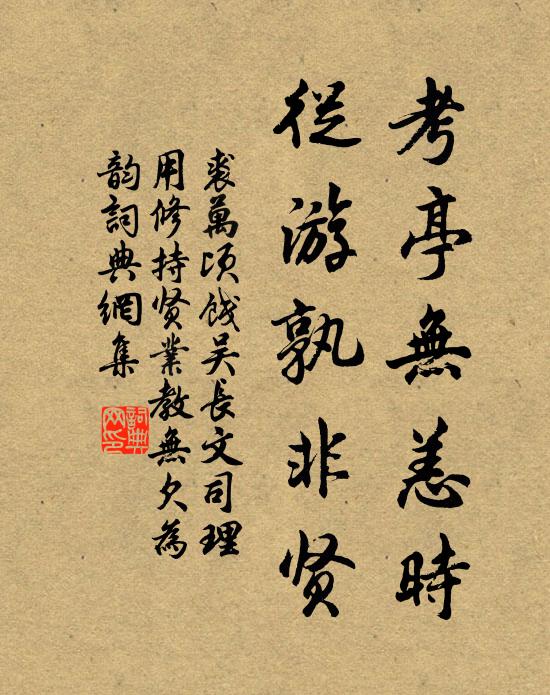 考亭無恙時
從游孰非贤
裘萬頃餞吴長文司理
用修持贤業教無欠為
韵詞典網集
詞典網印